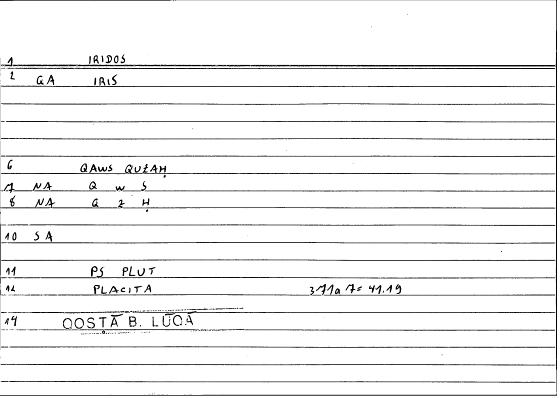 1 IRIDOS
2 GA IRIS
6 QAWS QUZAḤ
7 NA Q W S
8 NA Q Z Ḥ
10 SA
11 PS PLUT
12 PLACITA 371a7 = 41.19
14 QOSṬĀ B. LŪQĀ